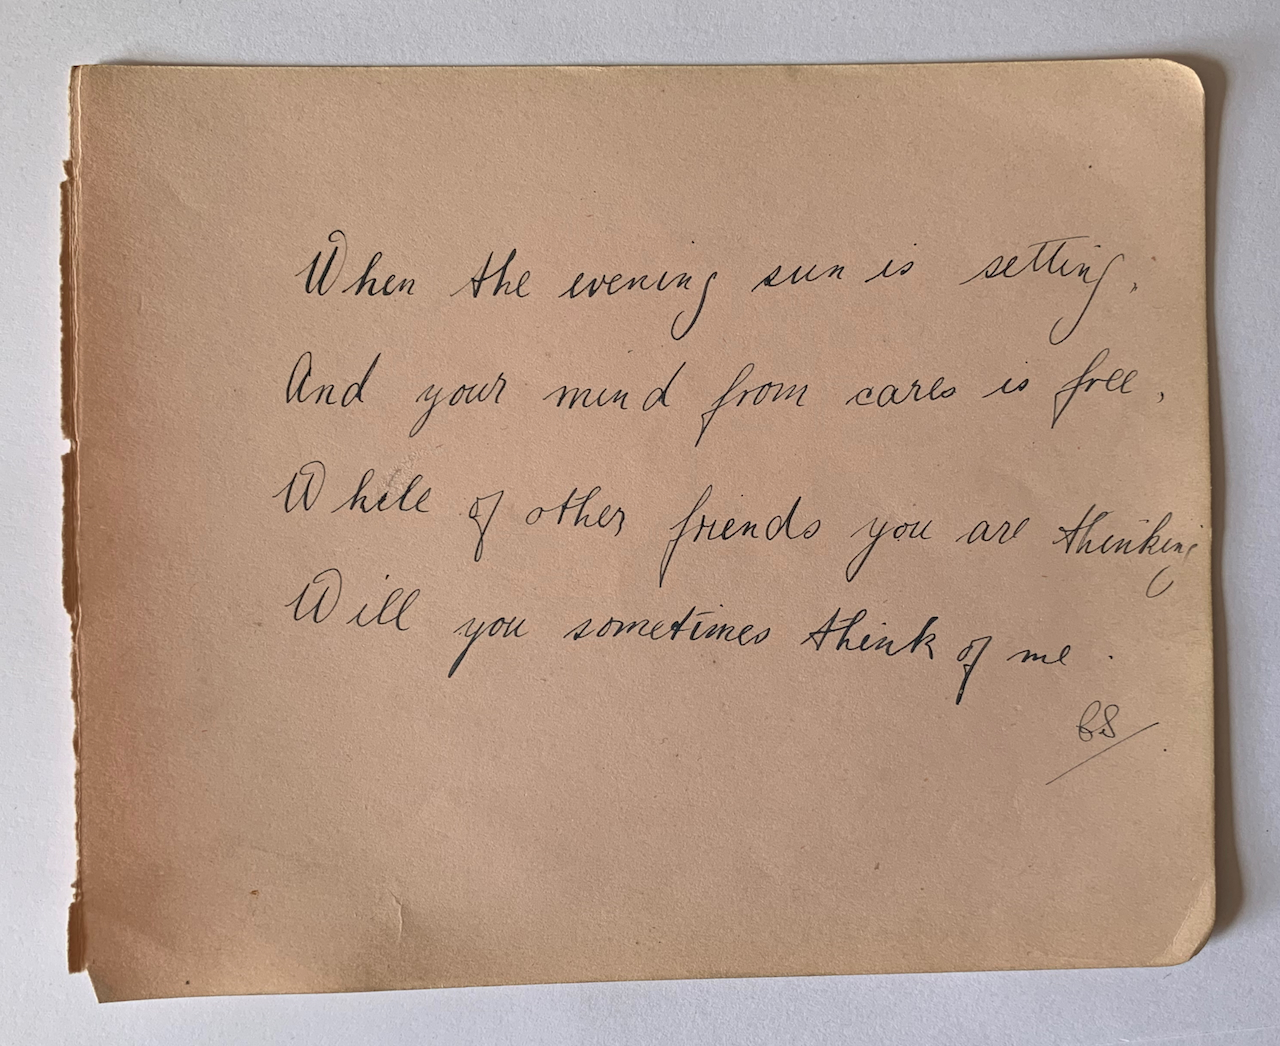 When the evening sun is setting,
And your mind from cares is free,
While of other friends you are thinking
Will you sometimes think of me.